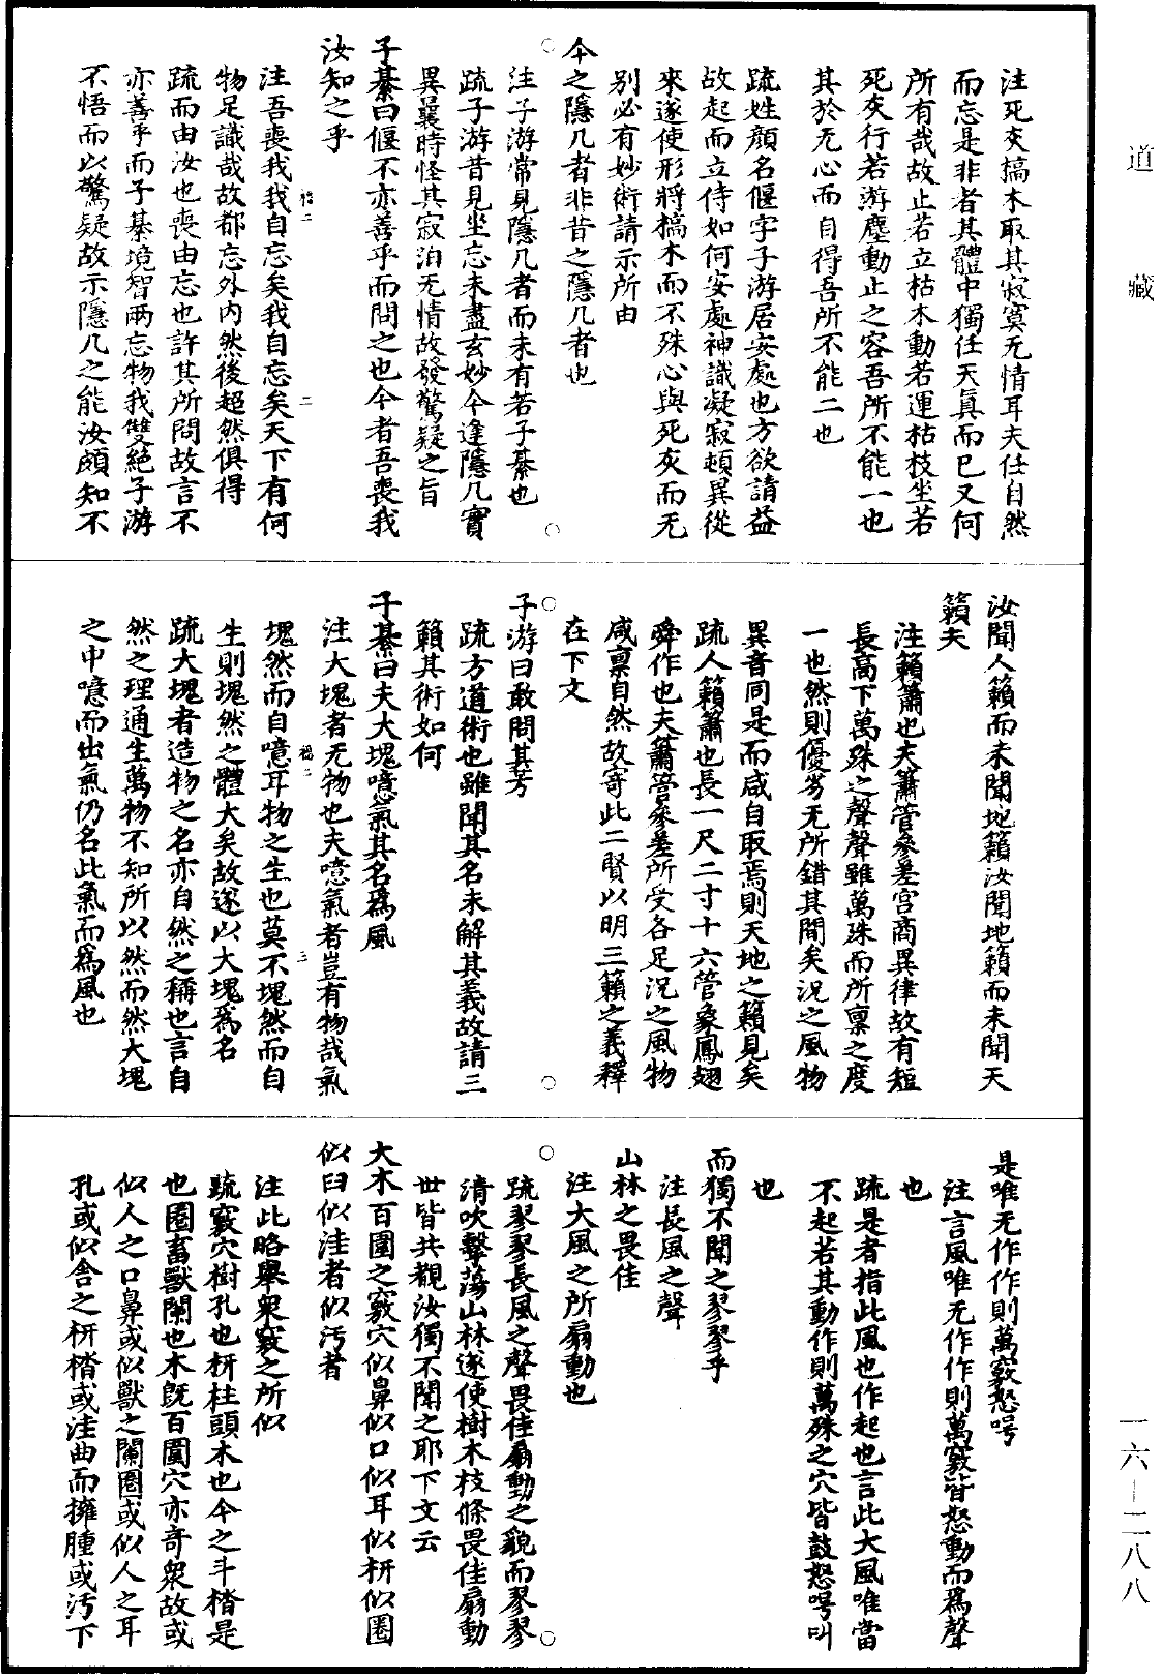 道藏
注死灰槁木取其寂寞无情耳夫任自然
而忘是非者其體中獨任天真而已又何
所有哉故止若立枯木動若運枯枝坐若
死灰行若遊塵動止之容吾所不能一也
其於无心而自得吾所不能二也
疏姓顏名偃字子游居安處也方欲請益
故起而立侍如何安處神識凝寂頓異從
來遂使形將槁木而不殊心與死灰而无
別必有妙術請示所由
今之隱几者非昔之隱几者也
注子游常見隱几者而未有若子綦也
疏子游昔見坐忘未盡玄妙今逢隱几實
異曩時怪其寂泊无情故發驚疑之旨
子綦曰偃不亦善乎而問之也今者吾喪我
汝知之乎
注吾喪我我自忘矣我自忘矣天下有何
物足識哉故都忘外內然後超然俱得
疏而由汝也喪由忘也許其所問故言不
亦善乎而子綦境智兩忘物我雙絕子游
不悟而以驚疑故示隱几之能汝頗知不
二
汝聞人籟而未聞地籟汝聞地籟而未聞天
籟夫
注籟簫也夫簫管參差宮商異律故有短
長高下萬殊之聲聲雖萬殊而所稟之度
一也然則優劣无所錯其間矣況之風物
異音同是而咸自取焉則天地之籟見矣
疏人籟簫也長一尺二寸十六管象鳳翅
舜作也夫簫管參差所受各足況之風物
咸稟自然故寄此二賢以明三籟之義釋
在下文
子游曰敢問其方
疏方道術也雖聞其名未解其義故請三
籟其術如何
子綦曰夫大塊噫氣其名為風
注大塊者无物也夫噫氣者豈有物哉氣
塊然而自噫耳物之生也莫不塊然而自
生則塊然之體大矣故遂以大塊為名
疏大塊者造物之名亦自然之稱也言自
然之理通生萬物不知所以然而然大塊
之中噫而出氣仍名此氣而為風也
三
是唯无作作則萬竅怒呺
注言風唯无作作則萬竅皆怒動而為聲
也
疏是者指此風也作起也言此大風唯當
不起若其動作則萬殊之穴皆鼓怒呺叫
也
而獨不聞之翏翏乎
注長風之聲
山林之畏佳
注大風之所扇動也
疏翏翏長風之聲畏佳扇動之貌而翏翏
清吹擊蕩山林遂使樹木枝條畏佳扇動
世皆共觀汝獨不聞之耶下文云
大木百圍之竅穴似鼻似口似耳似枅似圈
似臼似洼者似污者
注此略舉眾竅之所似
疏竅穴樹孔也枅柱頭木也今之斗楷是
也圈畜獸闌也木既百圍穴亦奇眾故或
似人之口鼻或似獸之闌圈或似人之耳
孔或似舍之枅楷或洼曲而擁腫或污下
一六—二八八